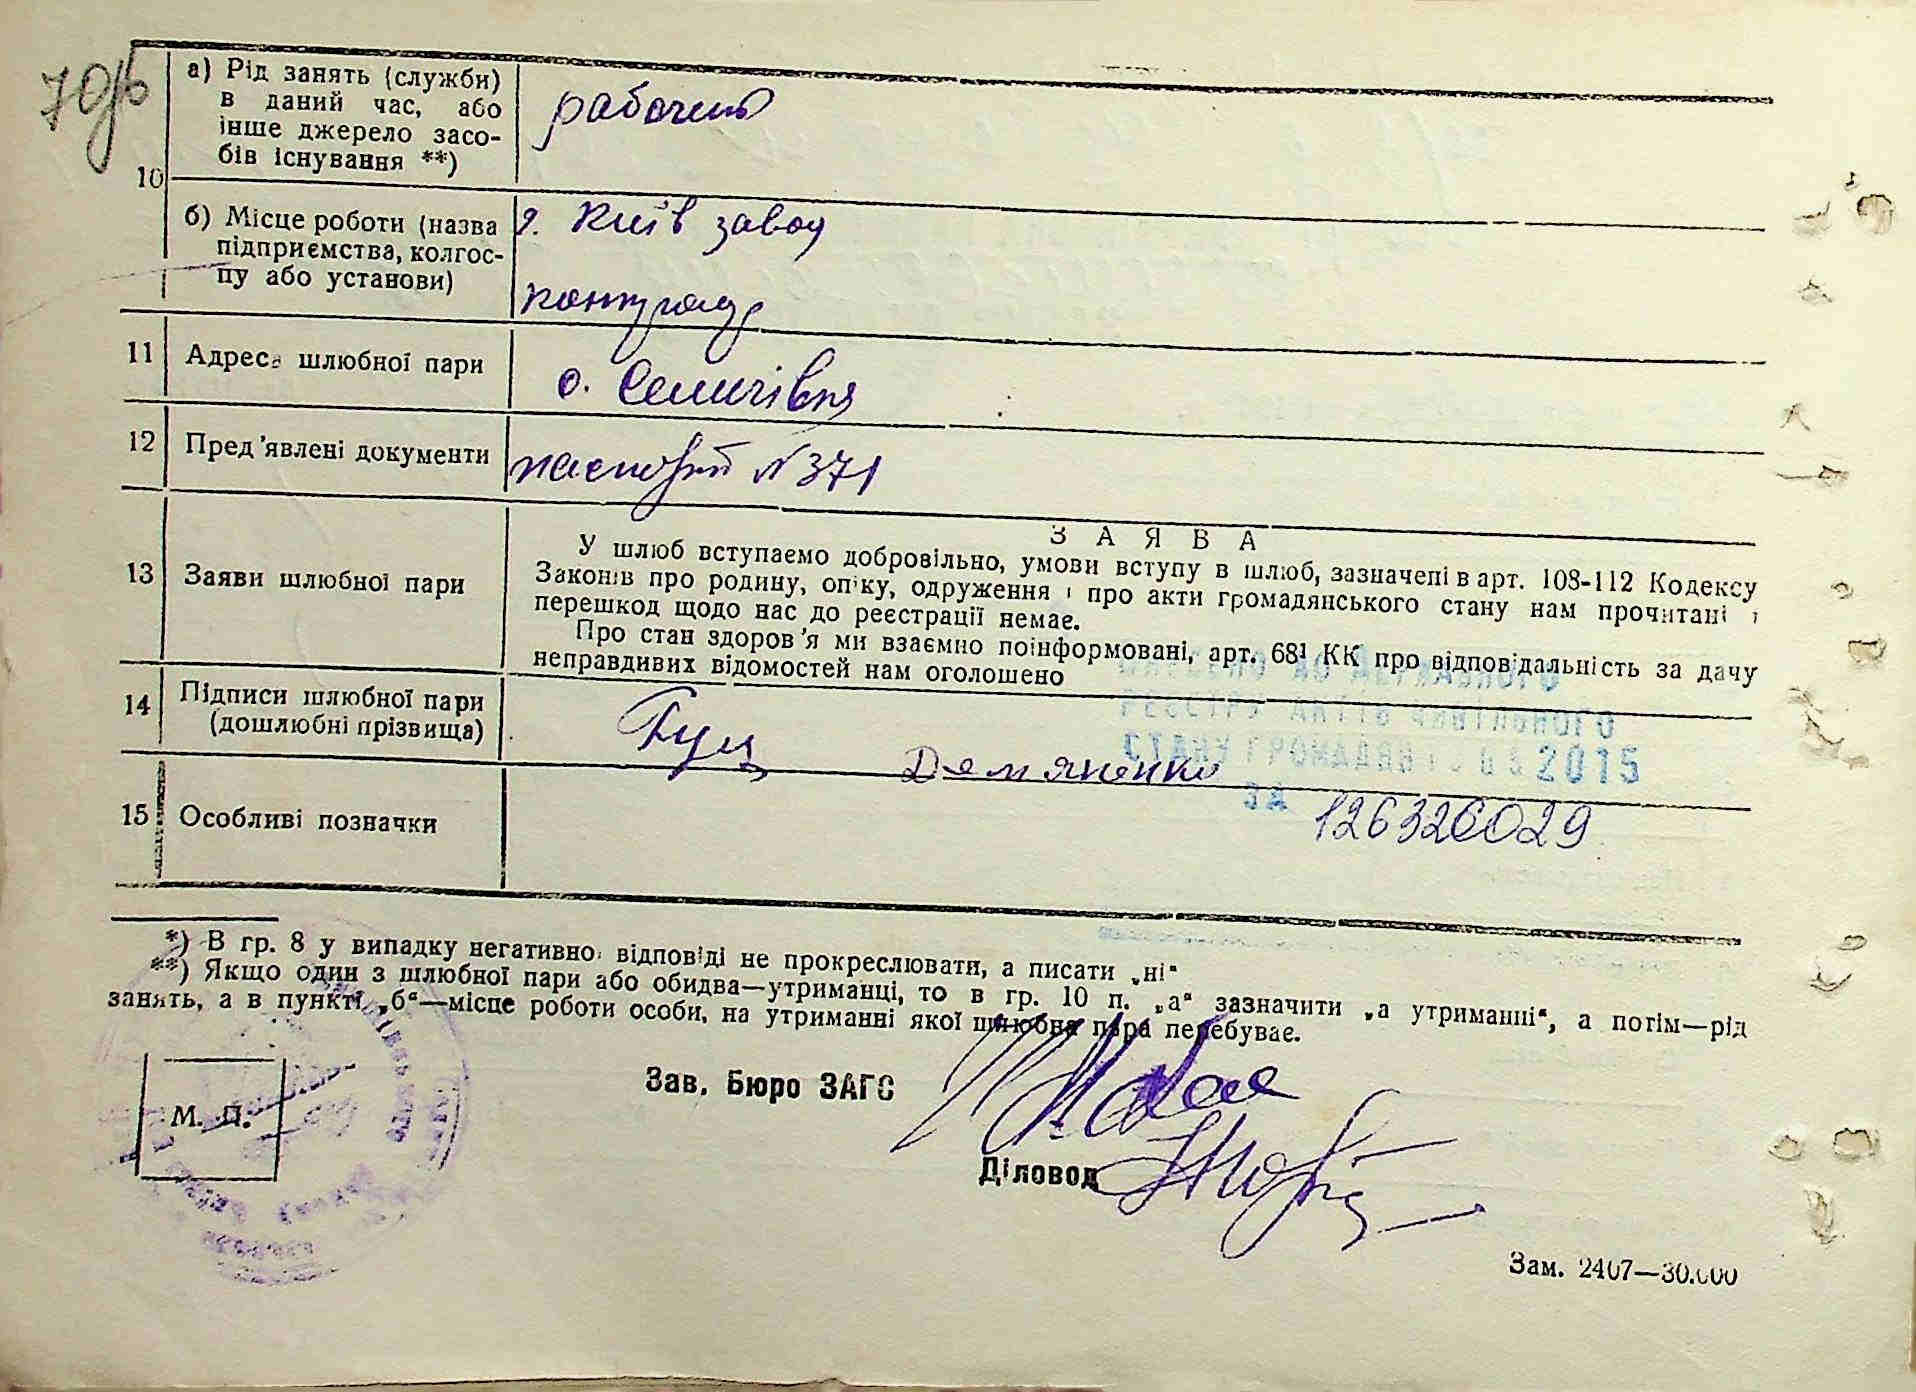 70/б
10
а) Рід занять (служби)
в даний час, або
інше джерело засо-
бів існування **)
рабочий
б) Місце роботи (назва
підприємства, колгос-
пу або установи)
г. Київ завод
11 Адреса шлюбної пари
с. Семичівка
12 Пред'явлені документи
паспорт №371
13 Заяви шлюбної пари
ЗАЯВА
У шлюб вступаємо добровільно, умови вступу в шлюб, зазначені в арт. 108-112 Кодексу
Законів про родину, опіку, одруження і про акти громадянського стану нам прочитані і
перешкод щодо нас до реєстрації немає.
Про стан здоров'я ми взаємно поінформовані, арт. 68¹ КК про відповідальність за дачу
неправдивих відомостей нам оголошено
14 Підписи шлюбної пари
(дошлюбні прізвища)
Куц Демяненко
ВНЕСЕНО ДО ДЕРЖАВНОГО
РЕЄСТРУ АКТІВ ЦИВІЛЬНОГО
СТАНУ ГРОМАДЯН 2015
ЗА 126326029
15 Особливі позначки
*) В гр. 8 у випадку негативно відповіді не прокреслювати, а писати „ні“
**) Якщо один з шлюбної пари або обидва—утриманці, то в гр. 10 п. „а“ зазначити „а утриманні“, а потім—рід
занять, а в пункті „б“—місце роботи особи, на утриманні якої шлюбна пара перебуває.
Зав. Бюро ЗАГС
М. П.
Діловод
Зам. 2407—30.000